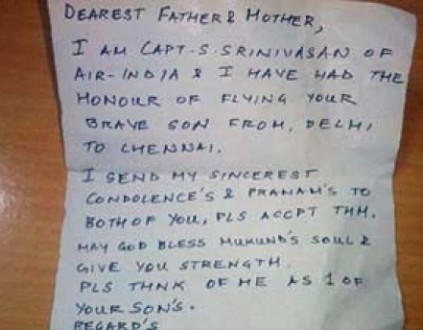 DEAREST FATHER & MOTHER,
I AM CAPT.S.SRINIVASAN OF
AIR-INDIA & I HAVE HAD THE
HONOUR OF FLYING YOUR
BRAVE SON FROM, DELHI
TO CHENNAI.
I SEND MY SINCEREST
CONDOLENCE'S & PRANAM'S TO
BOTH OF YOU, PLS ACCPT THM.
MAY GOD BLESS MUKUND'S SOUL &
GIVE YOU STRENGTH.
PLS THNK OF ME AS 1 OF
YOUR SON'S.
REGARD'S